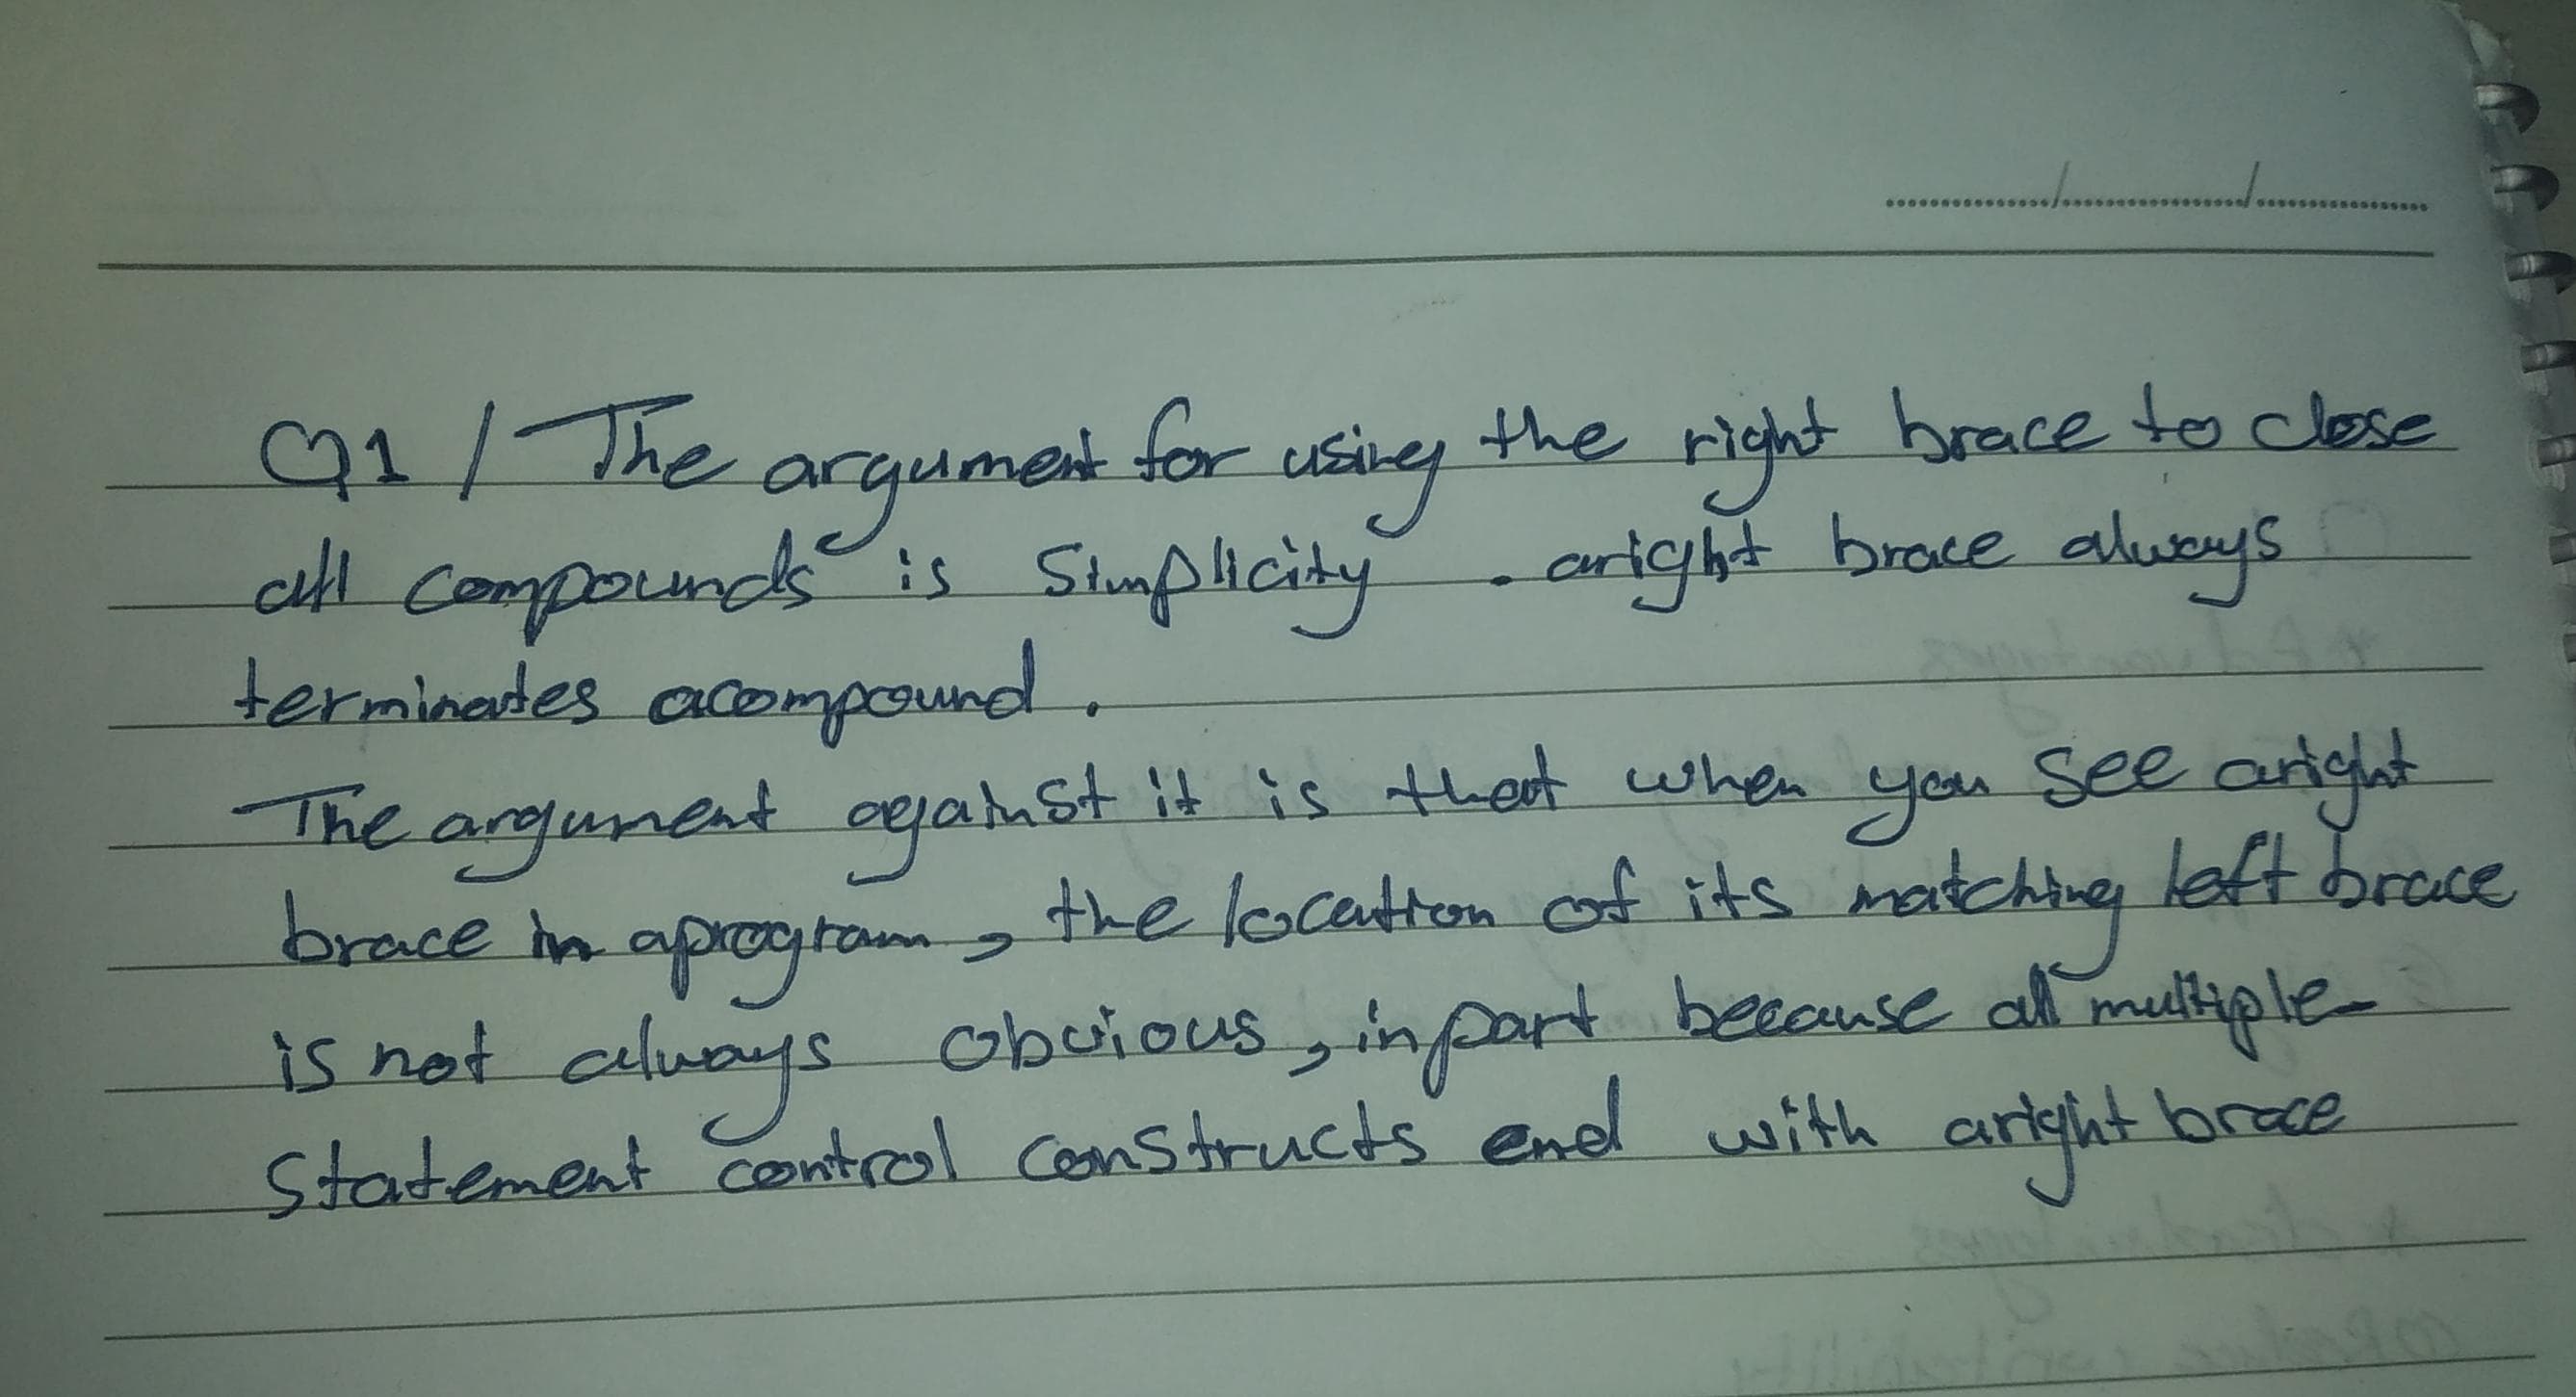 Q1 / The argument for using the right brace to close
all compounds is simplicity . aright brace always
terminates acompound .
The argument against it is that when you see aright
brace in aprogram , the location of its matching left brace
is not always obvious , inpart because all multiple-
statement control constructs end with aright brace